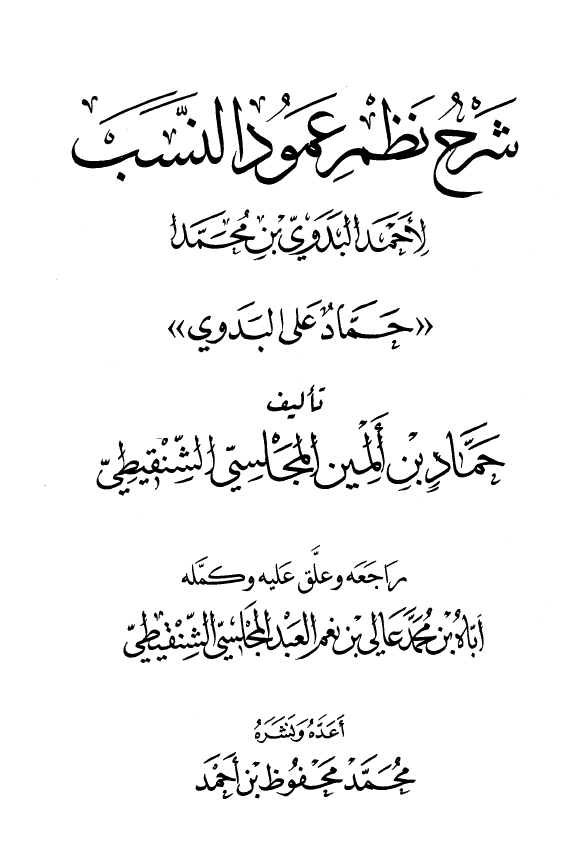 شَرْحُ نَظْمِ عَمُودِ النَّسَبِ
لِأَحْمَدَ البَدَوِيِّ بْنِ مُحَمَّدَا
«حَمَّادُ عَلَى البَدَوِي»
تأليف
حَمَّادِ بْنِ أَلْمِينِ المَجْلِسِيِّ الشِّنْقِيطِيِّ
رَاجَعَه وعلَّق عَليه وكمَّله
أبَّاهُ بْنُ مُحَمَّد عَالِي بْنِ نِعْمَ العَبْدِ المَجْلِسِيِّ الشِّنْقِيطِيِّ
أَعَدَّهُ وَنَشَرَهُ
مُحَمَّدْ مَحْفُوظْ بْنِ أَحْمَدَ